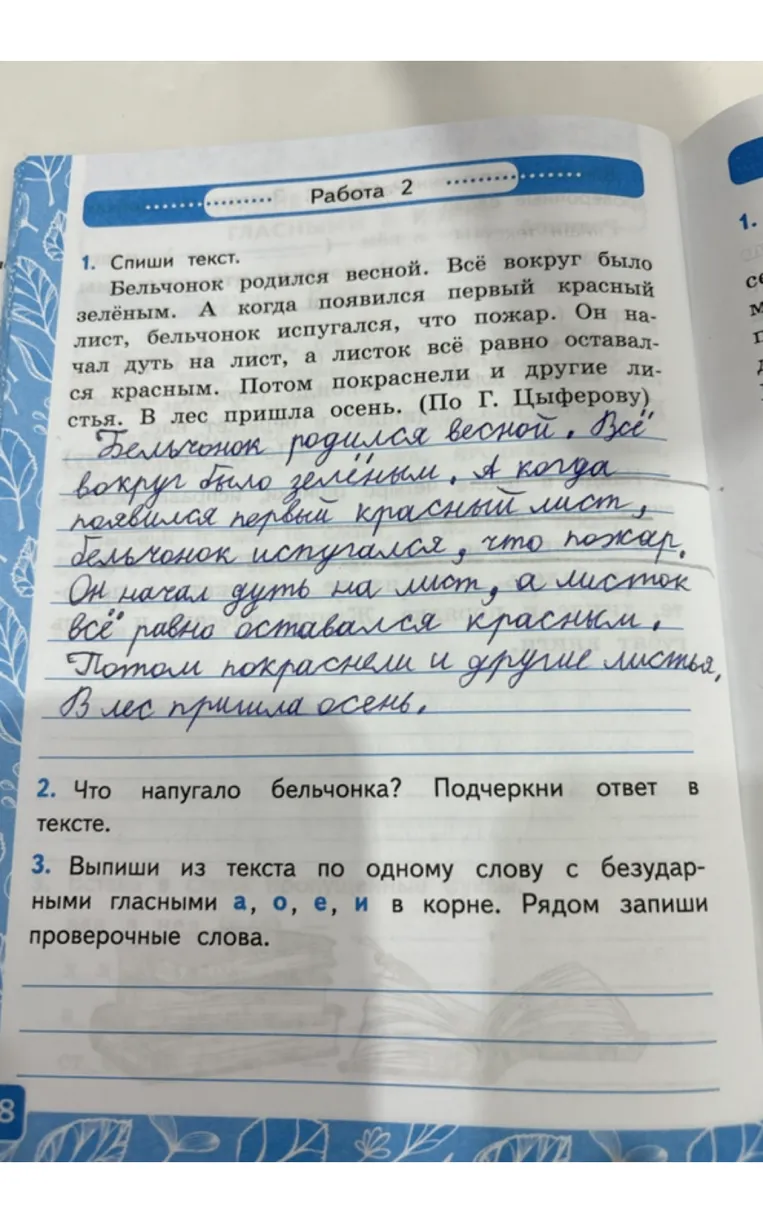 Работа 2
1. Спиши текст.
Бельчонок родился весной. Всё вокруг было
зелёным. А когда появился первый красный
лист, бельчонок испугался, что пожар. Он на-
чал дуть на лист, а листок всё равно оставал-
ся красным. Потом покраснели и другие ли-
стья. В лес пришла осень. (По Г. Цыферову)
Бельчонок родился весной. Всё
вокруг было зелёным. А когда
появился первый красный лист,
бельчонок испугался, что пожар.
Он начал дуть на лист, а листок
всё равно оставался красным.
Потом покраснели и другие листья.
В лес пришла осень.
2. Что напугало бельчонка? Подчеркни ответ в
тексте.
3. Выпиши из текста по одному слову с безудар-
ными гласными а, о, е, и в корне. Рядом запиши
проверочные слова.
8
1.